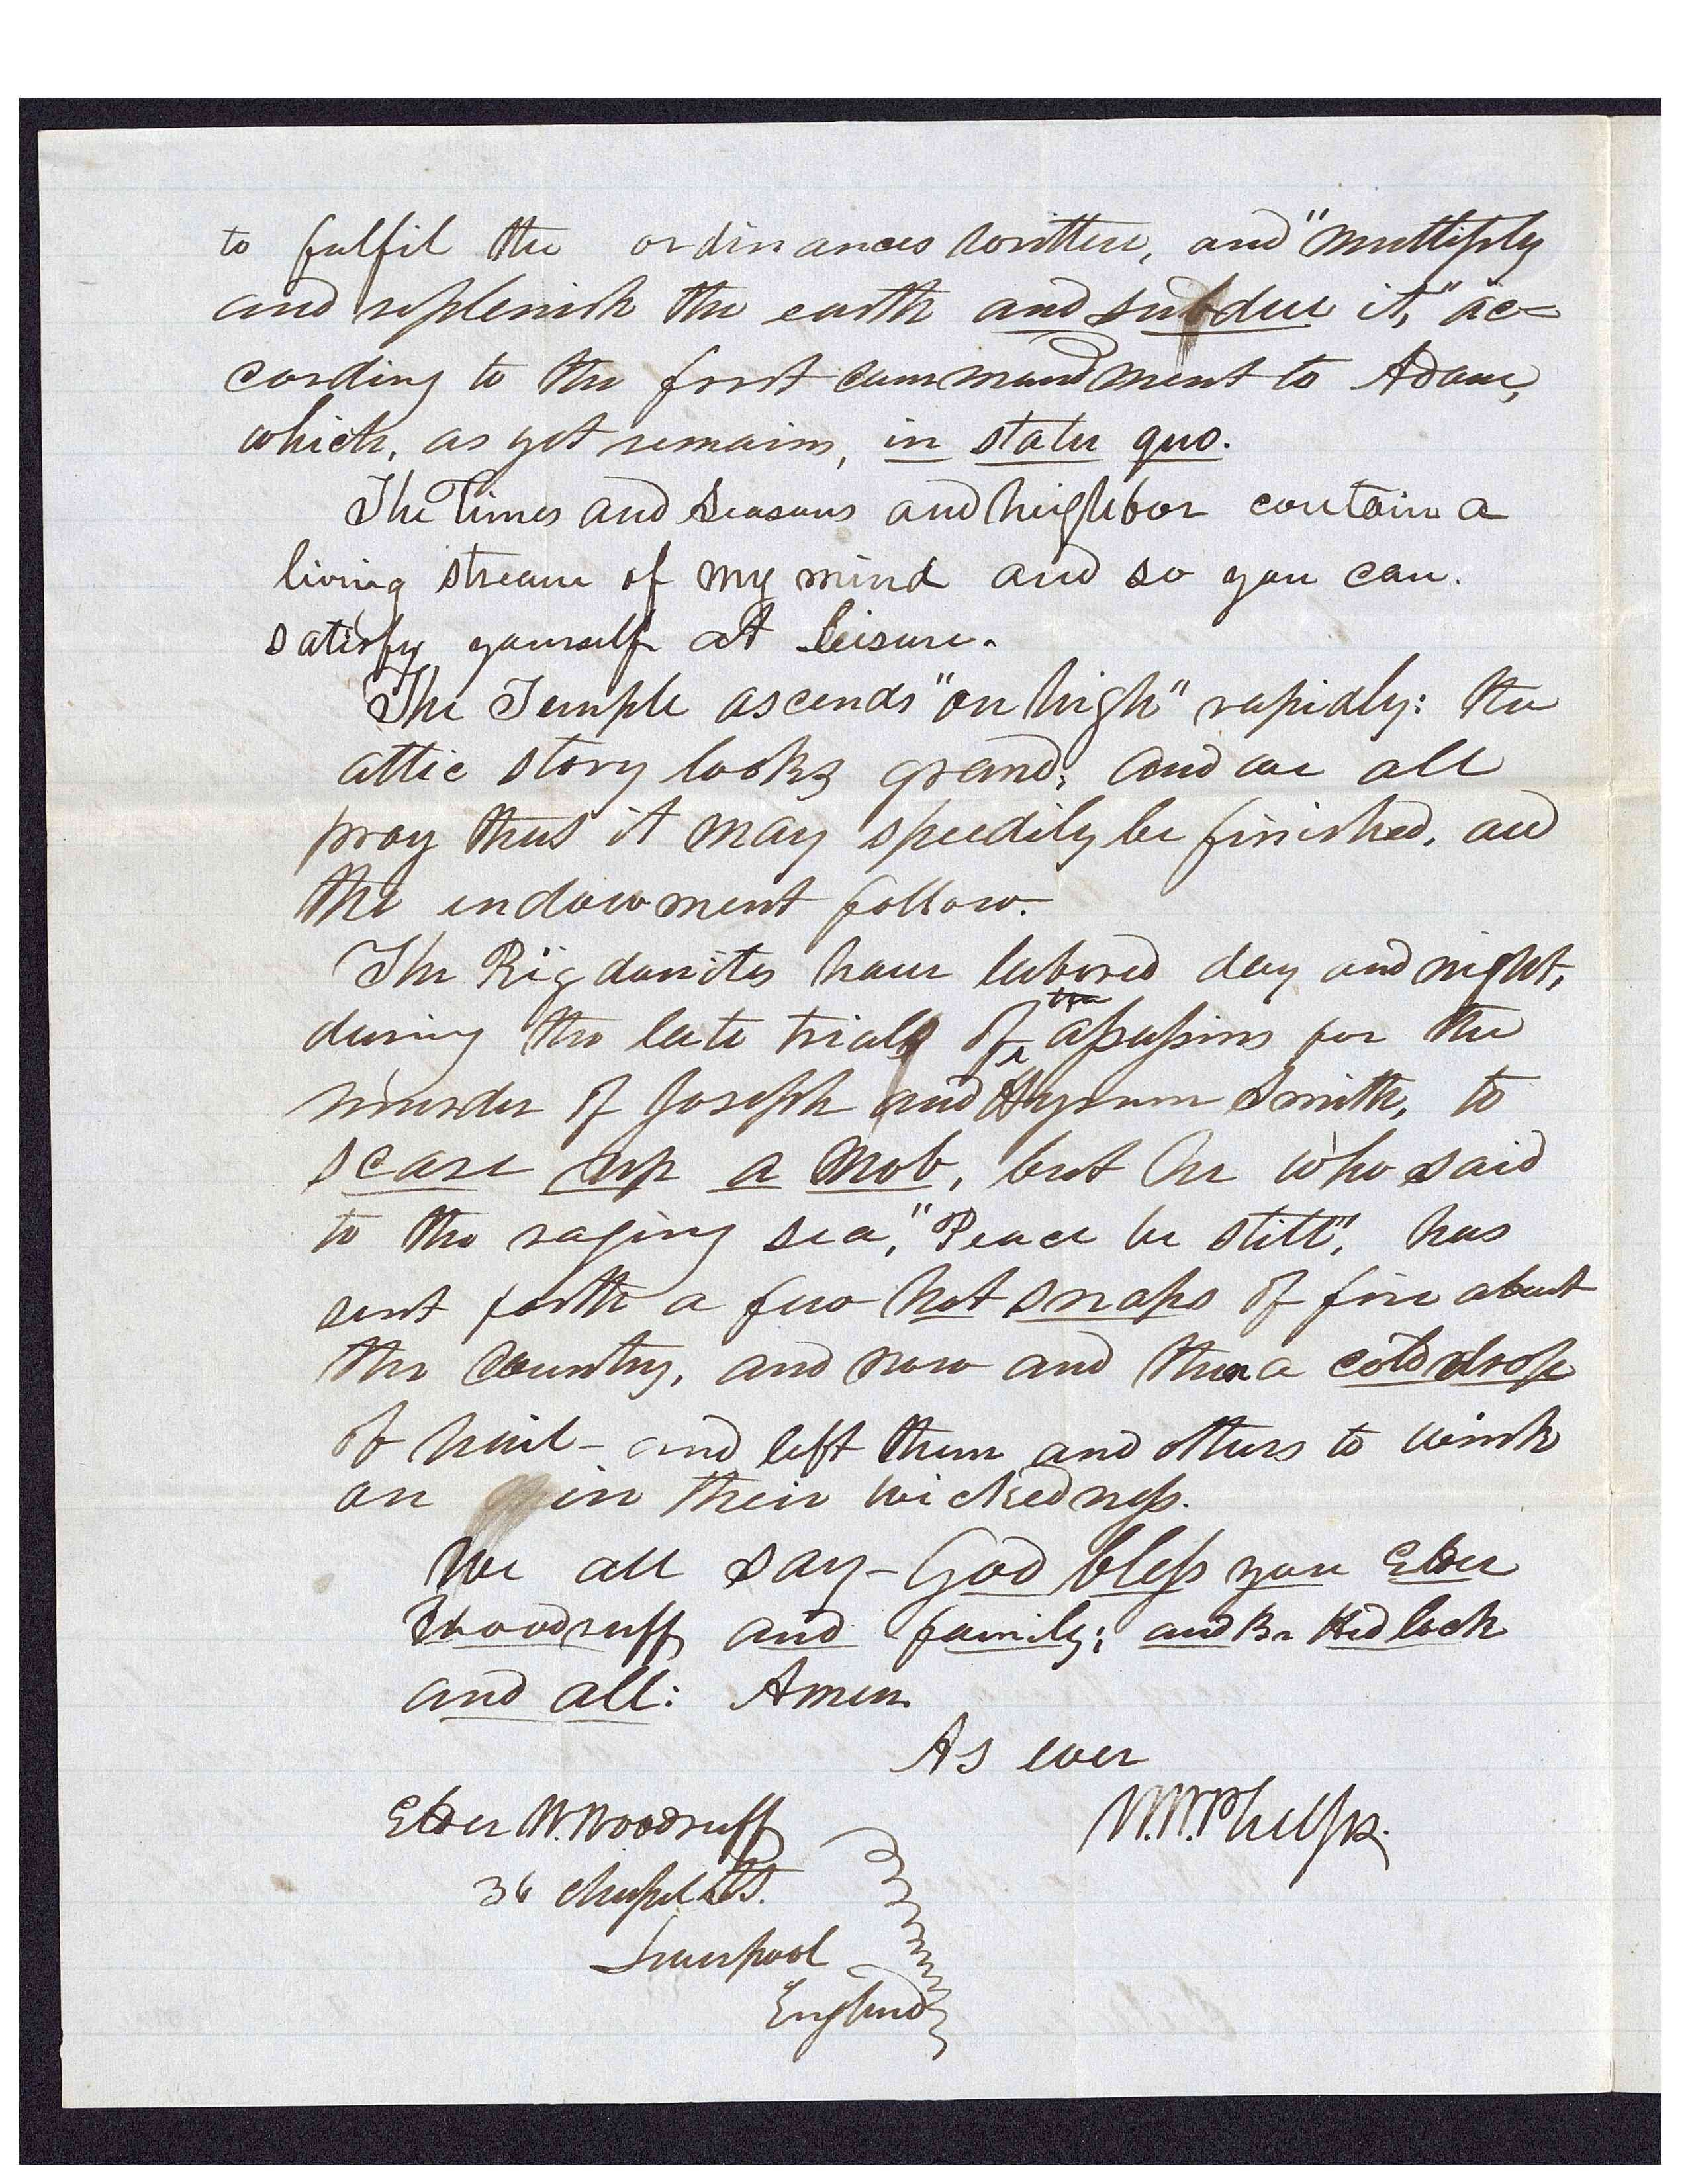 to fulfil the ordinances written, and "multiply
and replenish the earth and subdue it," ac=
cording to the first commandment to Adam,
which, as yet remains, in statu quo.
The Times and Seasons and Neighbor contain a
living stream of my mind and so you can.
satisfy yourself at leisure.
The Temple ascends "on high" rapidly: the
attic story looks grand, and we all
pray thus it may speedily be finished, and
the endowment follow.
The Rigdonites have labored day and night,
during the late trials of the assassins for the
murder of Joseph and Hyrum Smith, to
scare up a mob, but he who said
to the raging sea, "Peace be still", has
sent forth a few hot snaps of fire about
the country, and now and then a cold drop
of hail - and left them and others to wink
on in their wickedness.
We all say - God bless you Elder
Woodruff and family; and Br Hedlock
and all: Amen.
As ever
W. W. Phelps.
Elder W. Woodruff
36 Chapel St.
Liverpool
England